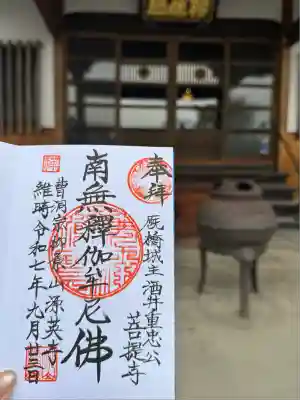 奉拝
厩橋城主酒井重忠公
菩提寺
南無釋伽牟尼佛
曹洞宗 山源英寺
維時令和七年九月廿三日